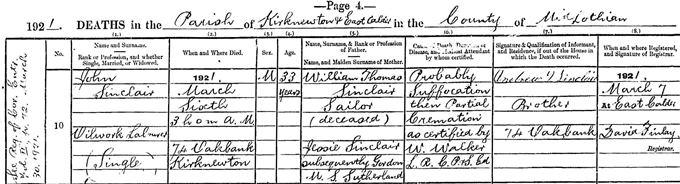 — Page 4. —
1921. DEATHS in the Parish of Kirknewton & East Calder in the County of Midlothian
(1.) (2.) (3.) (4.) (5.) (6.) (7.) (8.)
No.
Name and Surname.
Rank or Profession, and whether Single, Married, or Widowed.
When and Where Died.
Sex.
Age.
Name, Surname, & Rank or Profession of Father.
Name, and Maiden Surname of Mother.
Cause of Death, Duration of Disease, and Medical Attendant by whom certified.
Signature & Qualification of Informant, and Residence, if out of the House in which the Death occurred.
When and where Registered, and Signature of Registrar.
10
John
Sinclair
Oilwork Labourer
(Single)
1921
March
Sixth
3h 0m A.M.
74 Oakbank
Kirknewton
M
33
years
William Thomas
Sinclair
Sailor
(deceased)
Jessie Sinclair
subsequently Gordon
M.S. Sutherland
Probably
Suffocation
then Partial
Cremation
as certified by
W. Walker
L.R.C.P.&S. Ed
Andrew I Sinclair
Brother
74 Oakbank
1921.
March 7
At East Calder
David Finlay
Registrar.